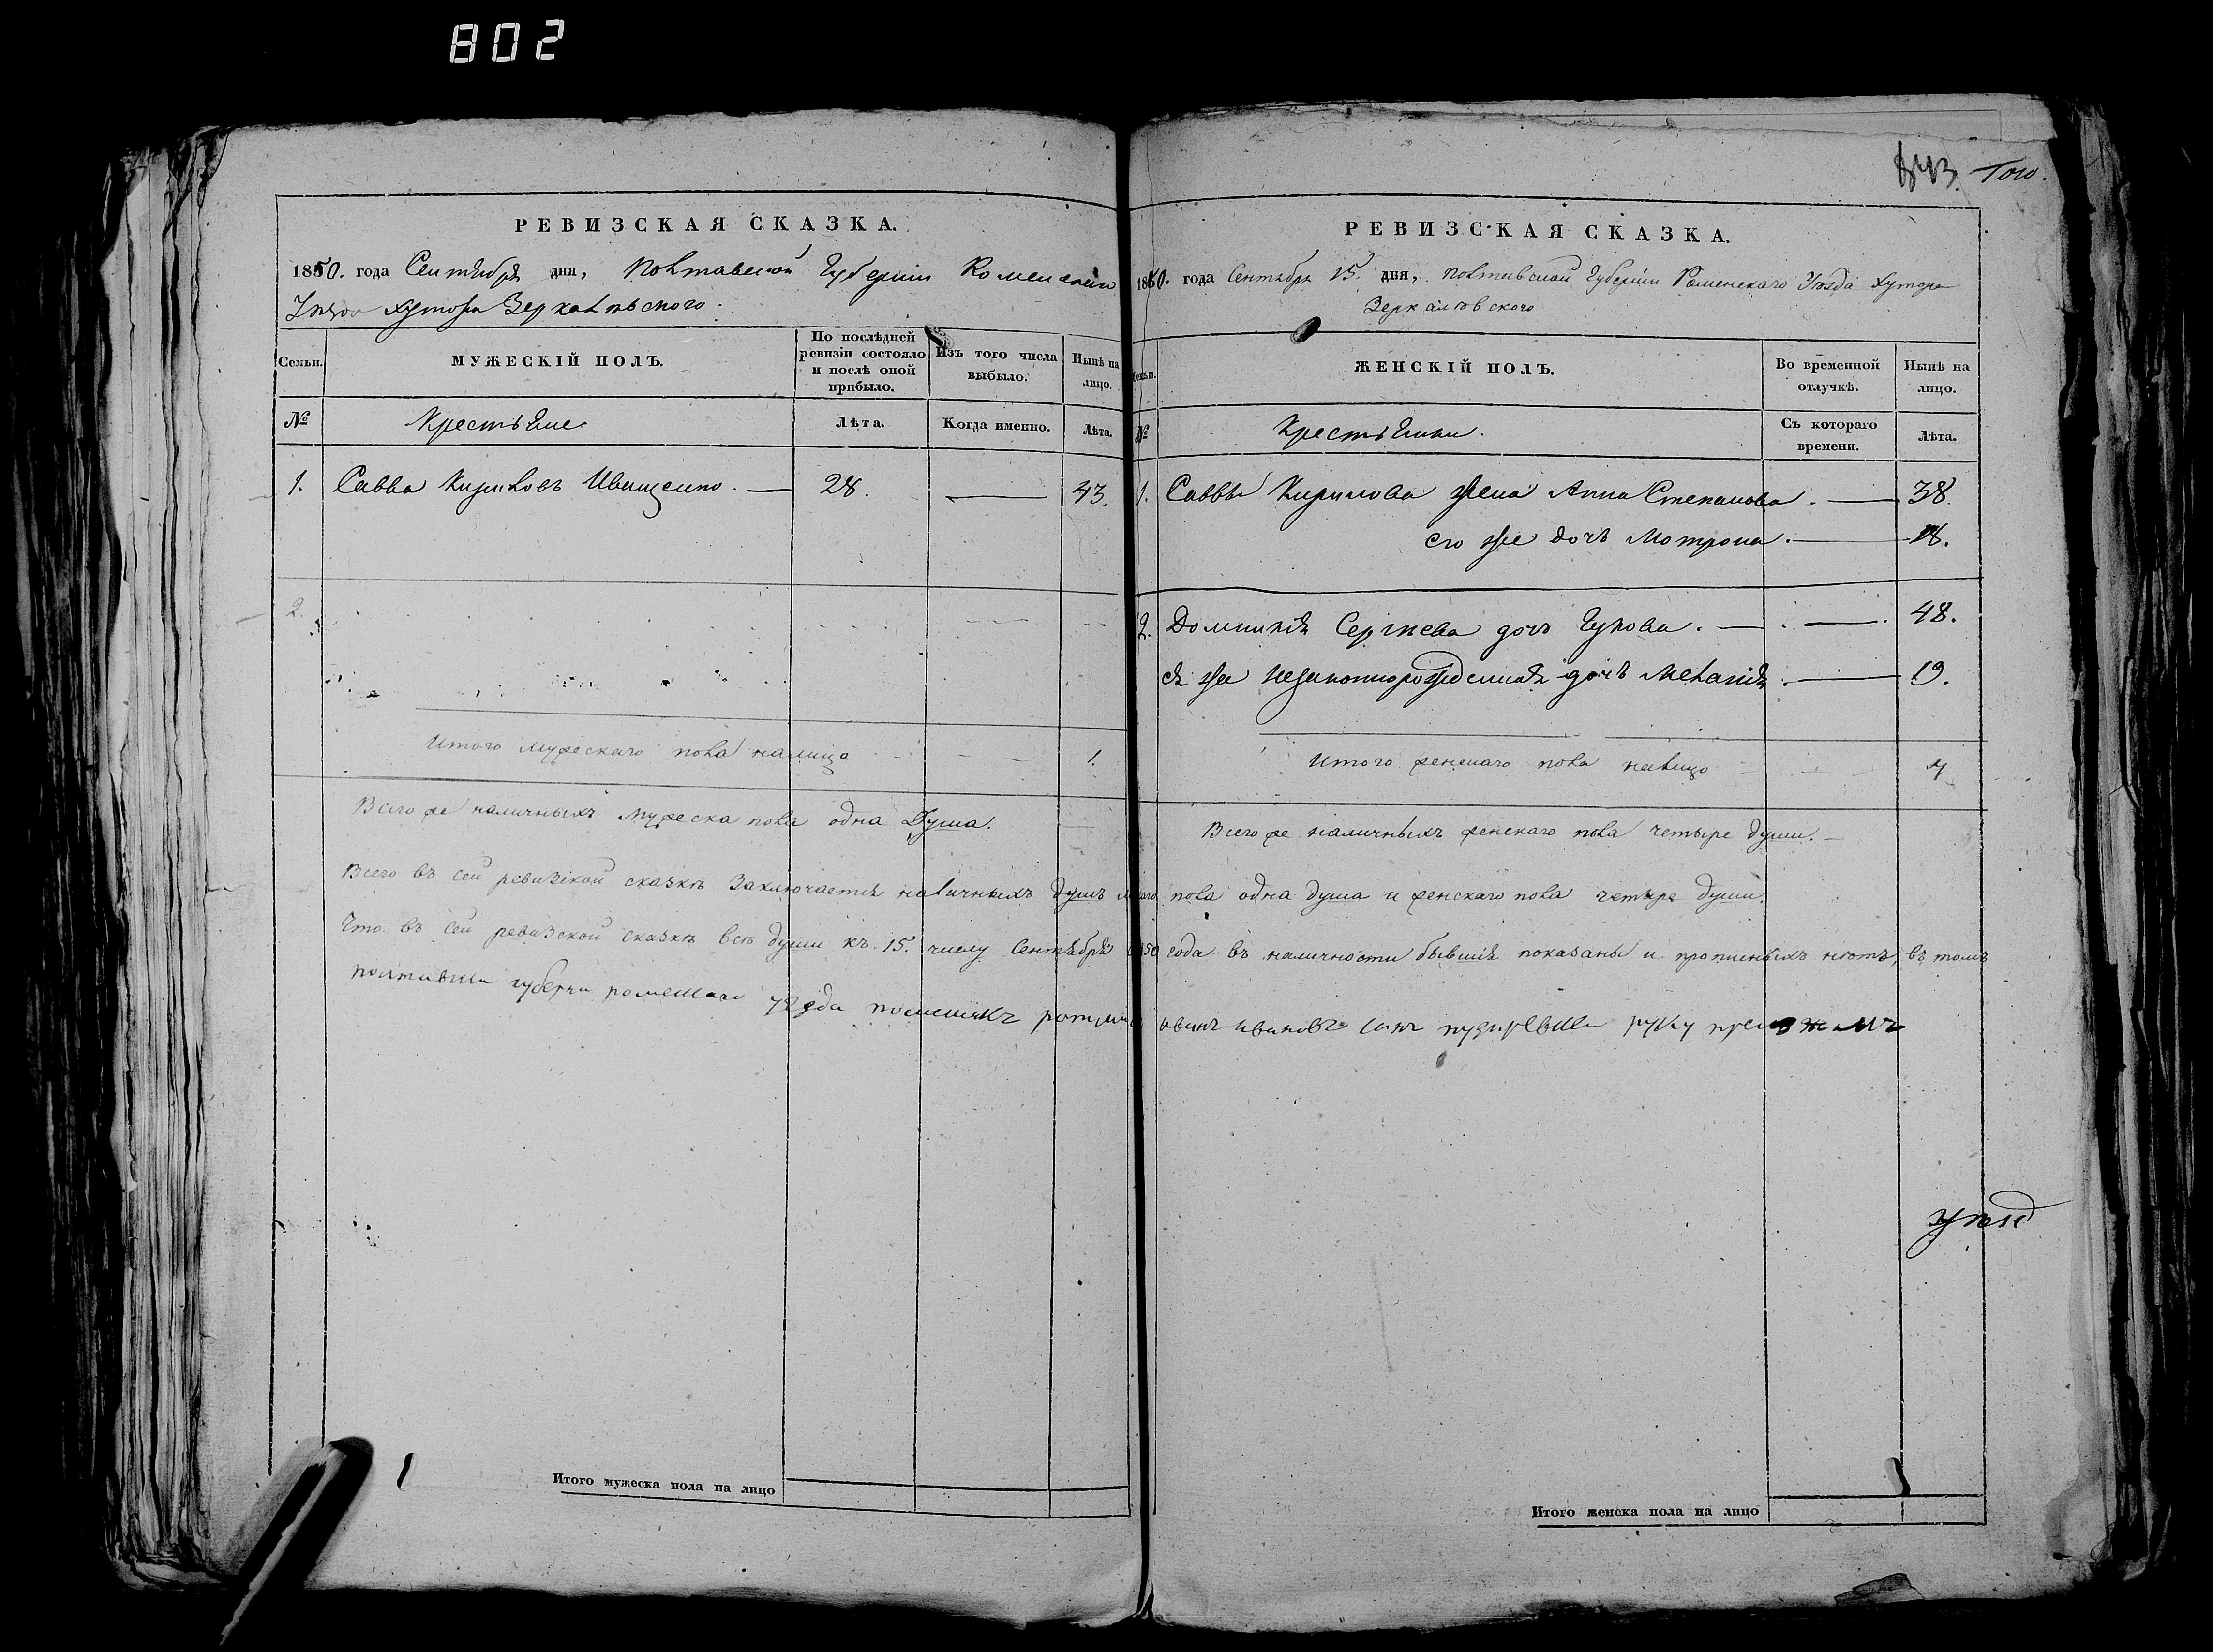 802
843. Того.
РЕВИЗСКАЯ СКАЗКА.
1850. года Сентября дня, Полтавской Губерніи Роменскаго
Уѣзда хутора Зеркалѣвского.
Семьи. МУЖЕСКІЙ ПОЛЪ. По послѣдней ревизіи состояло и послѣ оной прибыло. Изъ того числа выбыло. Нынѣ на лицо.
№ Крестьяне Лѣта. Когда именно. Лѣта.
1. Савва Кириловъ Иващенко. — 28. — 43.
2.
Итого мужескаго пола налицо 1.
Всего же наличныхъ мужеска пола одна Душа.
РЕВИЗСКАЯ СКАЗКА.
1850. года Сентября 15. дня, Полтавской Губерніи Роменскаго Уѣзда Хутора
Зеркалѣвского
Семьи. ЖЕНСКІЙ ПОЛЪ. Во временной отлучкѣ. Нынѣ на лицо.
№ Крестьянки. Съ котораго времени. Лѣта.
1. Саввы Кирилова жена Анна Степанова. — 38.
его же дочь Мотрона. — 18.
2. Домникія Сергѣева дочь Чукова. — — 48.
ея же незаконнорожденная дочь Меланія. — 19.
Итого женскаго пола налицо 4
Всего же наличныхъ женскаго пола четыре души. —
Всего въ сей ревизской сказкѣ Заключается наличныхъ душъ пола одна душа и женскаго пола четыре души.
Что въ сей ревизской сказкѣ всѣ души къ 15. числу Сентября 1850 года въ наличности бывшія показаны и прописныхъ нѣтъ, въ томъ
губерни уезда иванъ ивановъ сынъ руку
Итого мужеска пола на лицо
Итого женска пола на лицо